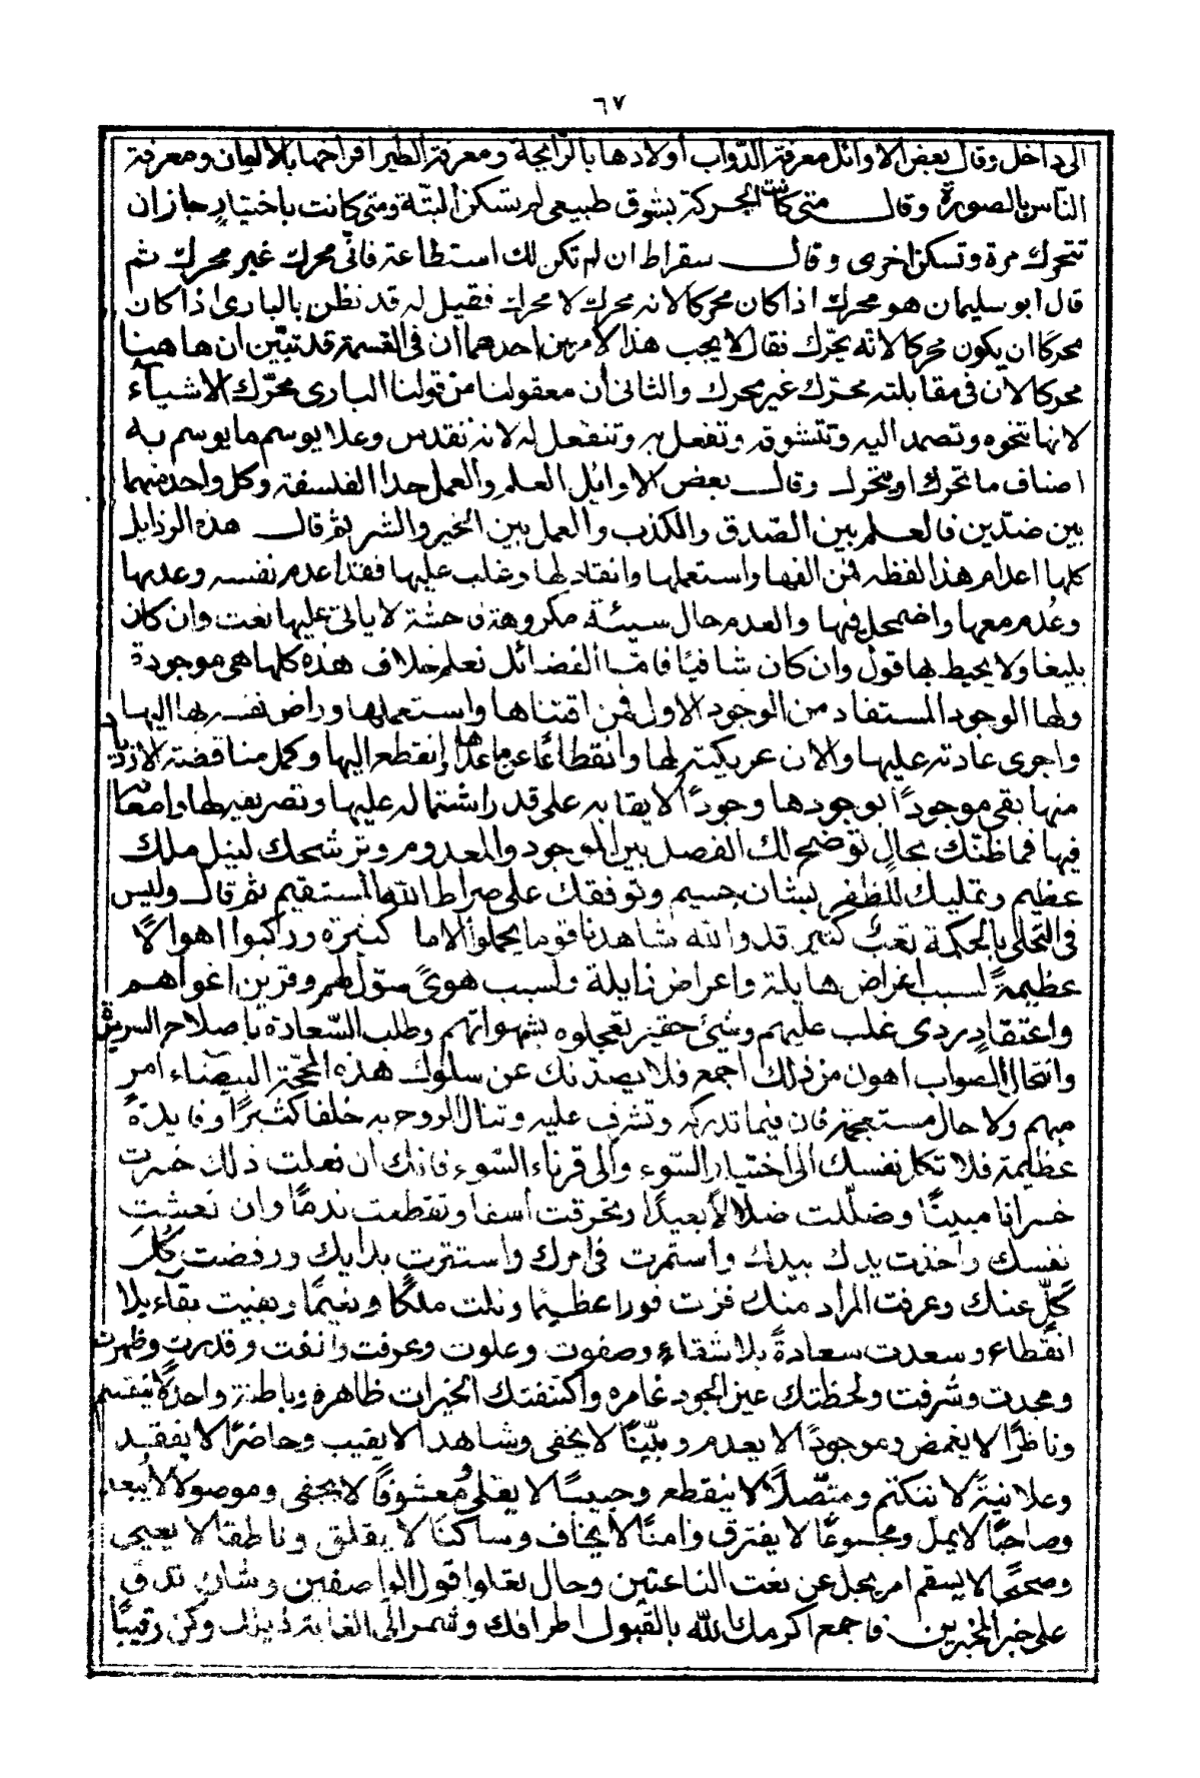 ٦٧
الى داخل وقال بعض الاوائل معرفة الدّواب أولادها بالرايحة ومعرفة الطير افراخها بالالحان ومعرفة
النّاس بالصورة وقال متى كانت الحركة بشوق طبيعى لم تسكن البتّة ومتى كانت باختيار جاز ان
تتحرك مرة وتسكن اخرى وقال سقراط ان لم تكن لك استطاعة فانى محرك غير محرك ثم
قال ابو سليمان هو محرك اذا كان محركا لانه محرك لا محرك فقيل له قد نظن بالبارى اذا كان
محركًا ان يكون محركا لانّه يحرّك فقال لا يجب هذا لأمرين احدهما ان فى القسمة قد تبيّن ان هاهنا
محركا لان فى مقابلته محرّك غير محرك والثانى أن معقولنا من قولنا البارى محرّك الاشيآء
لانها تنحوه وتصمد اليه وتتشوقه وتفعل به وتنفعل له لانه تقدس وعلا يوسم ما يوسم به
اصناف ما تحرك او يتحرك وقال بعض الاوائل العلم والعمل حدا الفلسفة وكل واحد منهما
بين ضدّين فالعلم بين الصّدق والكذب والعمل بين الخير والشر ثم قال هذه الرذايل
كلها اعدام هذا لفظه فمن الفها واستعملها وانقاد لها وغلب عليها فقد اعدم نفسه وعدمها
وعُدم معها واضمحل فيها والعدم حال سيئة مكروهة فاحشة لا ياتى عليها نعت وان كان
بليغا ولا يحيط بها قول وان كان شافيًا فامّا الفضائل نعلم خلاف هذه كلها هى موجودة
ولها الوجود المستفاد من الوجود الاول فمن اقتناها واستعملها وراض نفسه بها اليها
واجرى عادته عليها والان عريكته لها وانقطاعًا عن ما عداها إنقطع اليها وكمل مناقضة الازديا
د
منها بقى موجودًا بوجودها وجودًا لا بقا به على قدر اشتماله عليها وتصريفه لها وامعانه
فيها فما ظنّك بحالٍ توضح لك الفصل بين الموجود والمعدوم وترشحك لنيل ملك
عظيم وتمليك للظفر بشان جسيم وتوفقك على صراط الله المستقيم ثم قال وليس
فى التحلى بالحكمة تعبٌ كثير قد والله شاهدنا قوما يحملوا الاما كثيرة وركبوا اهوالًا
عظيمةً لسبب اغراض هايلة واعراض زايلة ولسبب هوىً سوّل لهم وقرين اغواهم
واعتقادٍ ردى غلب عليهم وشئ حقير تعجلوه بشهواتهم وطلب السّعادة باصلاح السريرة
وانتحال الصواب اهون من ذلك اجمع فلا يصدّنك عن سلوك هذه المحجّة البيضاء امر
مبهم ولا حال مستعجمة فان فيما تدركه وتشرف عليه وتنال الروح به خلفا كثيرًا وفايدةً
عظيمة فلا تكل نفسك الى اختيار السّوء والى قرناء السّوء فانك ان فعلت ذلك خسرت
خسرانا مبينًا وضللت ضلالًا بعيدًا وتحرقت أسفا وتقطعت ندمًا وان نعشت
نفسك واخذت يدك بيدك واستمرت فى امرك واستترت برايك ورفضت كلَّ
كلٍّ عنك وعرفت المراد منك فزت فوزا عظيما ونلت ملكًا ونعيمًا وبقيت بقاء بلا
انقطاع وسعدت سعادةً بلا شقاءٍ وصفوت وعلوت وعرفت وانفت وقدرت وظهرت
ومجدت وشرفت ولحظتك عين الجود غامره واكتنفتك الخيرات ظاهرة وباطنة واحدًا لا ينقسم
وناظرًا لا يغمض وموجودًا لا يعدم وبيّنًا لا يخفى وشاهدا لا يغيب وحاضرًا لا يفقد
وعلانيةً لا ينكتم ومتّصلًا لا ينقطع وحبيبًا لا يقلى ومعشوقًا لا يجفى وموصولا لا يبعد
وصاحبًا لا يمل ومجموعًا لا يفترق وامنًا لا يخاف وساكنًا لا يقلق وناطقا لا يعيى
وصحيحًا لا يسقم امر يجل عن نعت الناعتين وحال تعلوا قول الواصفين وشان تدق
على خبر المخبرين فاجمع اكرمك الله بالقبول اطرافك وشمر الى الغاية ذيلك وكن رقيبًا